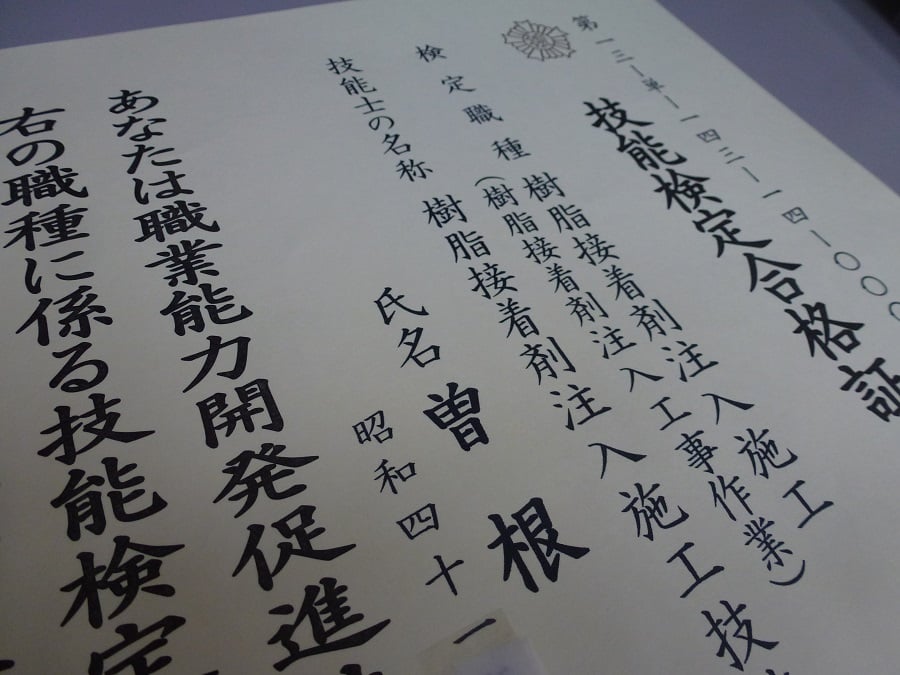 第一三ー単ー一四三ー一四ー〇〇
技能検定合格証
検定職種 樹脂接着剤注入施工
(樹脂接着剤注入工事作業)
技能士の名称 樹脂接着剤注入施工技
氏名 曽根
昭和四十一
あなたは職業能力開発促進
右の職種に係る技能検定